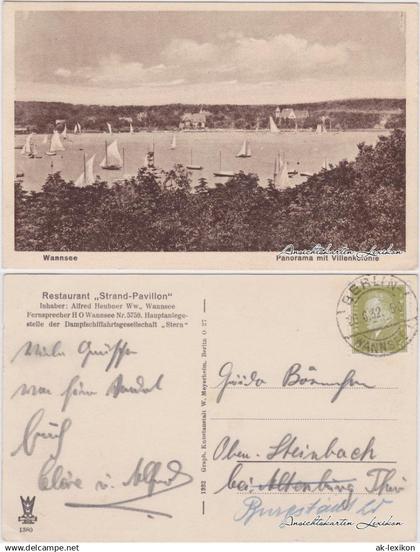 Wannsee
Panorama mit Villenkolonie
Ansichtskarten Lexikon
Restaurant „Strand-Pavillon"
Inhaber: Alfred Heubner Ww., Wannsee
Fernsprecher H O Wannsee Nr. 5759. Hauptanlege-
stelle der Dampfschiffahrtsgesellschaft „Stern"
Viele Grüsse
Euch
u. Alfred
1380
1932 Graph. Kunstanstalt W. Meyerheim, Berlin O 27
BERLIN
WANNSEE
Guido
Ober-Steinbach
bei Altenburg Thür
Burgstädt
Ansichtskarten Lexikon
www.ansichtskarten-lexikon.de
ak-lexikon.de